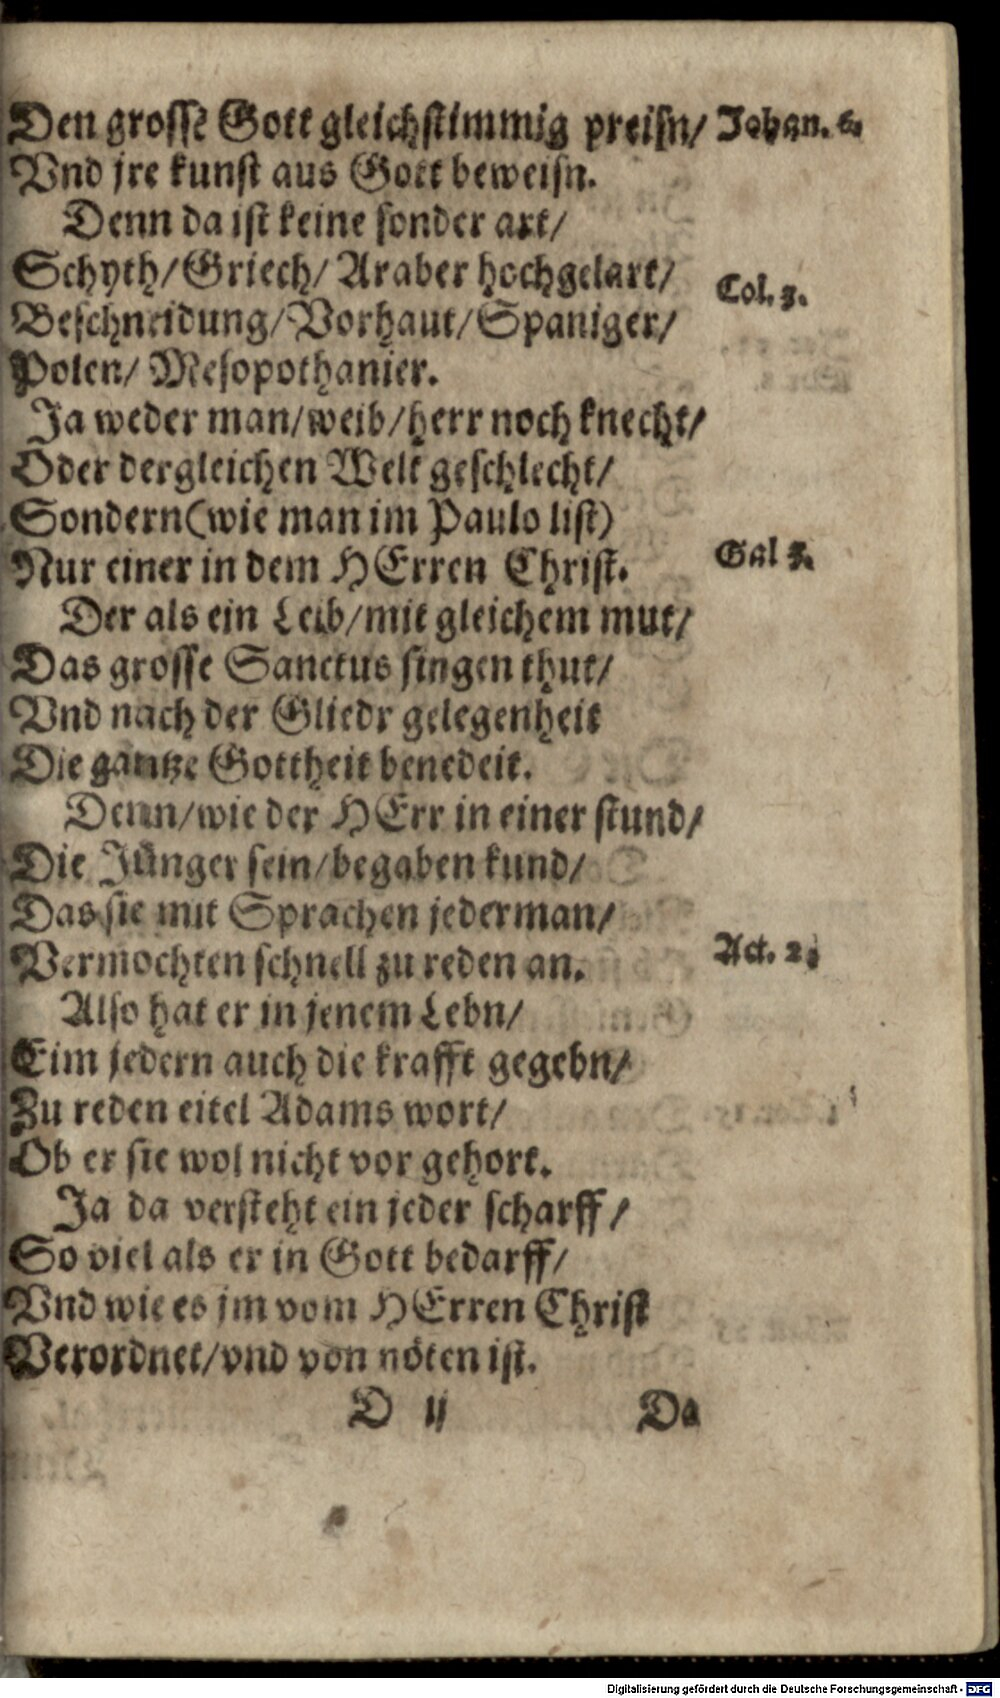 Den grosse Gott gleichstimmig preisn/ Johan. 6.
Vnd jre kunst aus Gott beweisn.
Denn da ist keine sonder art/
Schyth/Griech/Araber hochgelart/
Col. 3.
Beschneidung/Vorhaut/Spaniger/
Polen/Mesopothanier.
Ja weder man/weib/herr noch knecht/
Oder dergleichen Welt geschlecht/
Sondern(wie man im Paulo list)
Nur einer in dem HErren Christ.
Gal 3.
Der als ein Leib/mit gleichem mut/
Das grosse Sanctus singen thut/
Vnd nach der Gliedr gelegenheit
Die gantze Gottheit benedeit.
Denn/wie der HErr in einer stund/
Die Jünger sein/begaben kund/
Das sie mit Sprachen jederman/
Vermochten schnell zu reden an.
Act. 2.
Also hat er in jenem Lebn/
Eim jedern auch die krafft gegebn/
Zu reden eitel Adams wort/
Ob er sie wol nicht vor gehort.
Ja da versteht ein jeder scharff/
So viel als er in Gott bedarff/
Vnd wie es jm vom HErren Christ
Verordnet/vnd von nöten ist.
D ij Da
Digitalisierung gefördert durch die Deutsche Forschungsgemeinschaft - DFG